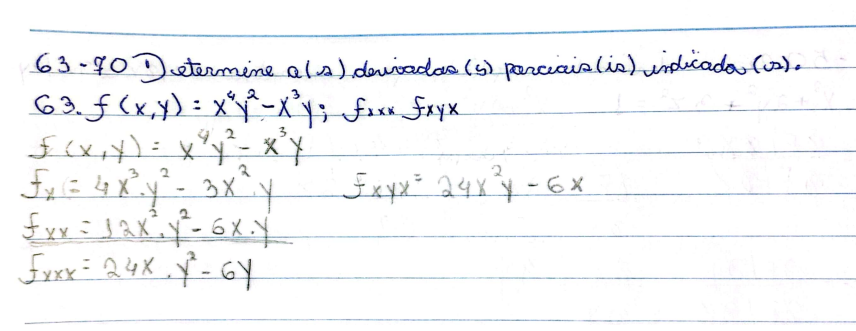 63-70 Determine a(s) derivadas (s) parciais(is) indicada (os).
63. f(x,y) = x⁴y² - x³y; fxxx fxyx
f(x,y) = x⁴y² - x³y
fx = 4x³.y² - 3x².y fxyx = 24x²y - 6x
fxx = 12x².y² - 6x.y
fxxx = 24x.y² - 6y